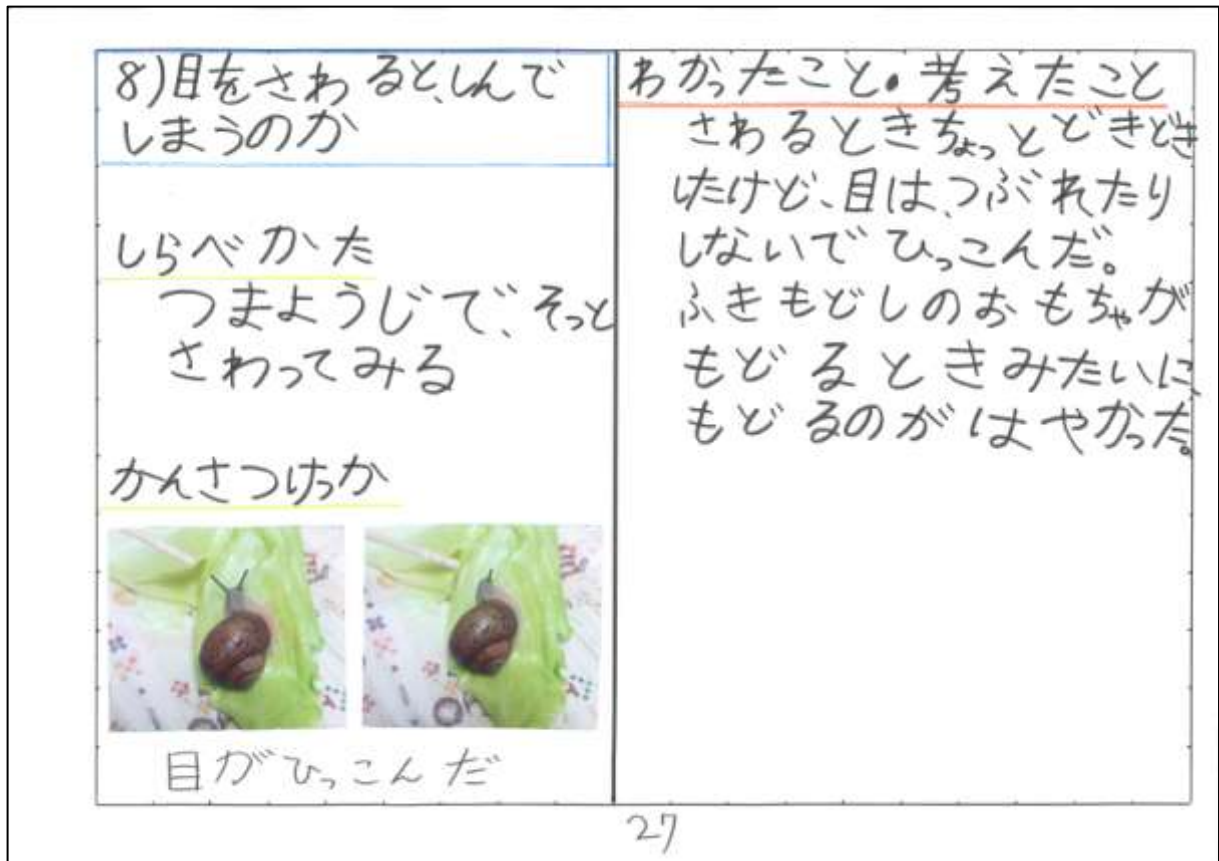 8)目をさわると、しんで
しまうのか
しらべかた
つまようじで、そっと
さわってみる
かんさつけっか
目がひっこんだ
わかったこと・考えたこと
さわるときちょっとどきどき
したけど、目は、つぶれたり
しないでひっこんだ。
ふきもどしのおもちゃが
もどるときみたいに、
もどるのがはやかった。
27